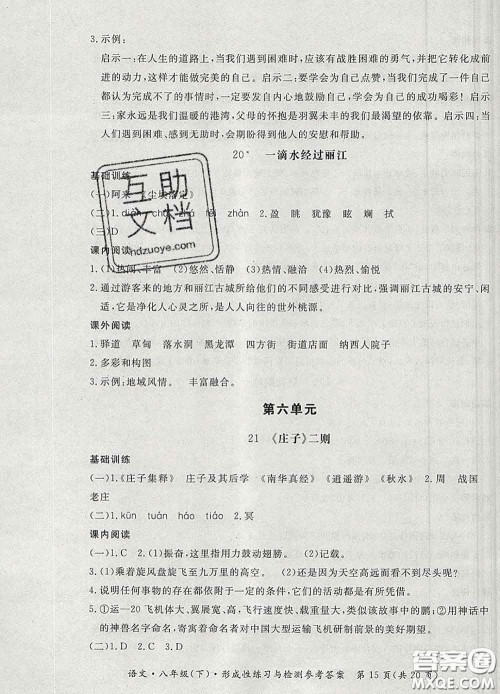 3.示例:
启示一:在人生的道路上,当我们遇到困难时,应该有战胜困难的勇气,并把它转化成前
进的动力,这样才能做更完美的自己。启示二:要学会为自己点赞,当我们成功地完成了人们
都认为完成不了的事情时,一定要发自内心地鼓励自己,学会为自己的成功喝彩!启示
三:家永远是我们温暖的港湾,父母的怀抱是羽翼未丰的我们最可靠的保障。启示四:当
人们遇到困难、感到无助时,会期盼得到他人的安慰和帮助。
20* 一滴水经过丽江
基础训练
(一)阿来 《尘埃落定》
(二)1.diàn chù shù tè zhàn 2.盈 眺 犹豫 眩 斓 拭
(三)D
课内阅读
1.(1)热闹、丰富 (2)悠然、恬静 (3)热情、融洽 (4)热烈、愉悦
2.通过游客来的地方和丽江古城所给他们的不同感受进行对比,强调丽江古城的安宁、闲
适,它是净化人心灵之所,是人人向往的世外桃源。
课外阅读
1.驿道 草甸 落水洞 黑龙潭 四方街 银器店 纳西人院子
2.多彩和构图
3.示例:地域风情。 丰富融合。
第六单元
21 《庄子》二则
基础训练
(一)1.《庄子集释》 庄子及其后学 《南华真经》 《逍遥游》 《秋水》 2.周 战国
老庄
(二)1.kūn tuán háo tiáo 2.冥
课内阅读
1.C 2.(1)振奋,这里指用力鼓动翅膀。 (2)记载。
3.(1)乘着旋风盘旋飞至九万里的高空。 (2)还是因为天空高远而看不到尽头呢?
4.说明任何事物的存在都依赖于一定的条件,它们的活动都是有所依凭的。
5.①运—20飞机体大、翼展宽、高、飞行航程大,类似该故事中的鹏。②飞机用神话中
的神兽名字命名,寄寓着中国对大型运输飞机研制前景的美好期望。
(二)1.D 2.C
语文·八年级(下)·形成性练习与检测参考答案 第15页(共20页)
互助
文档
hdzuoye.com
答案圈
MXQE.COM